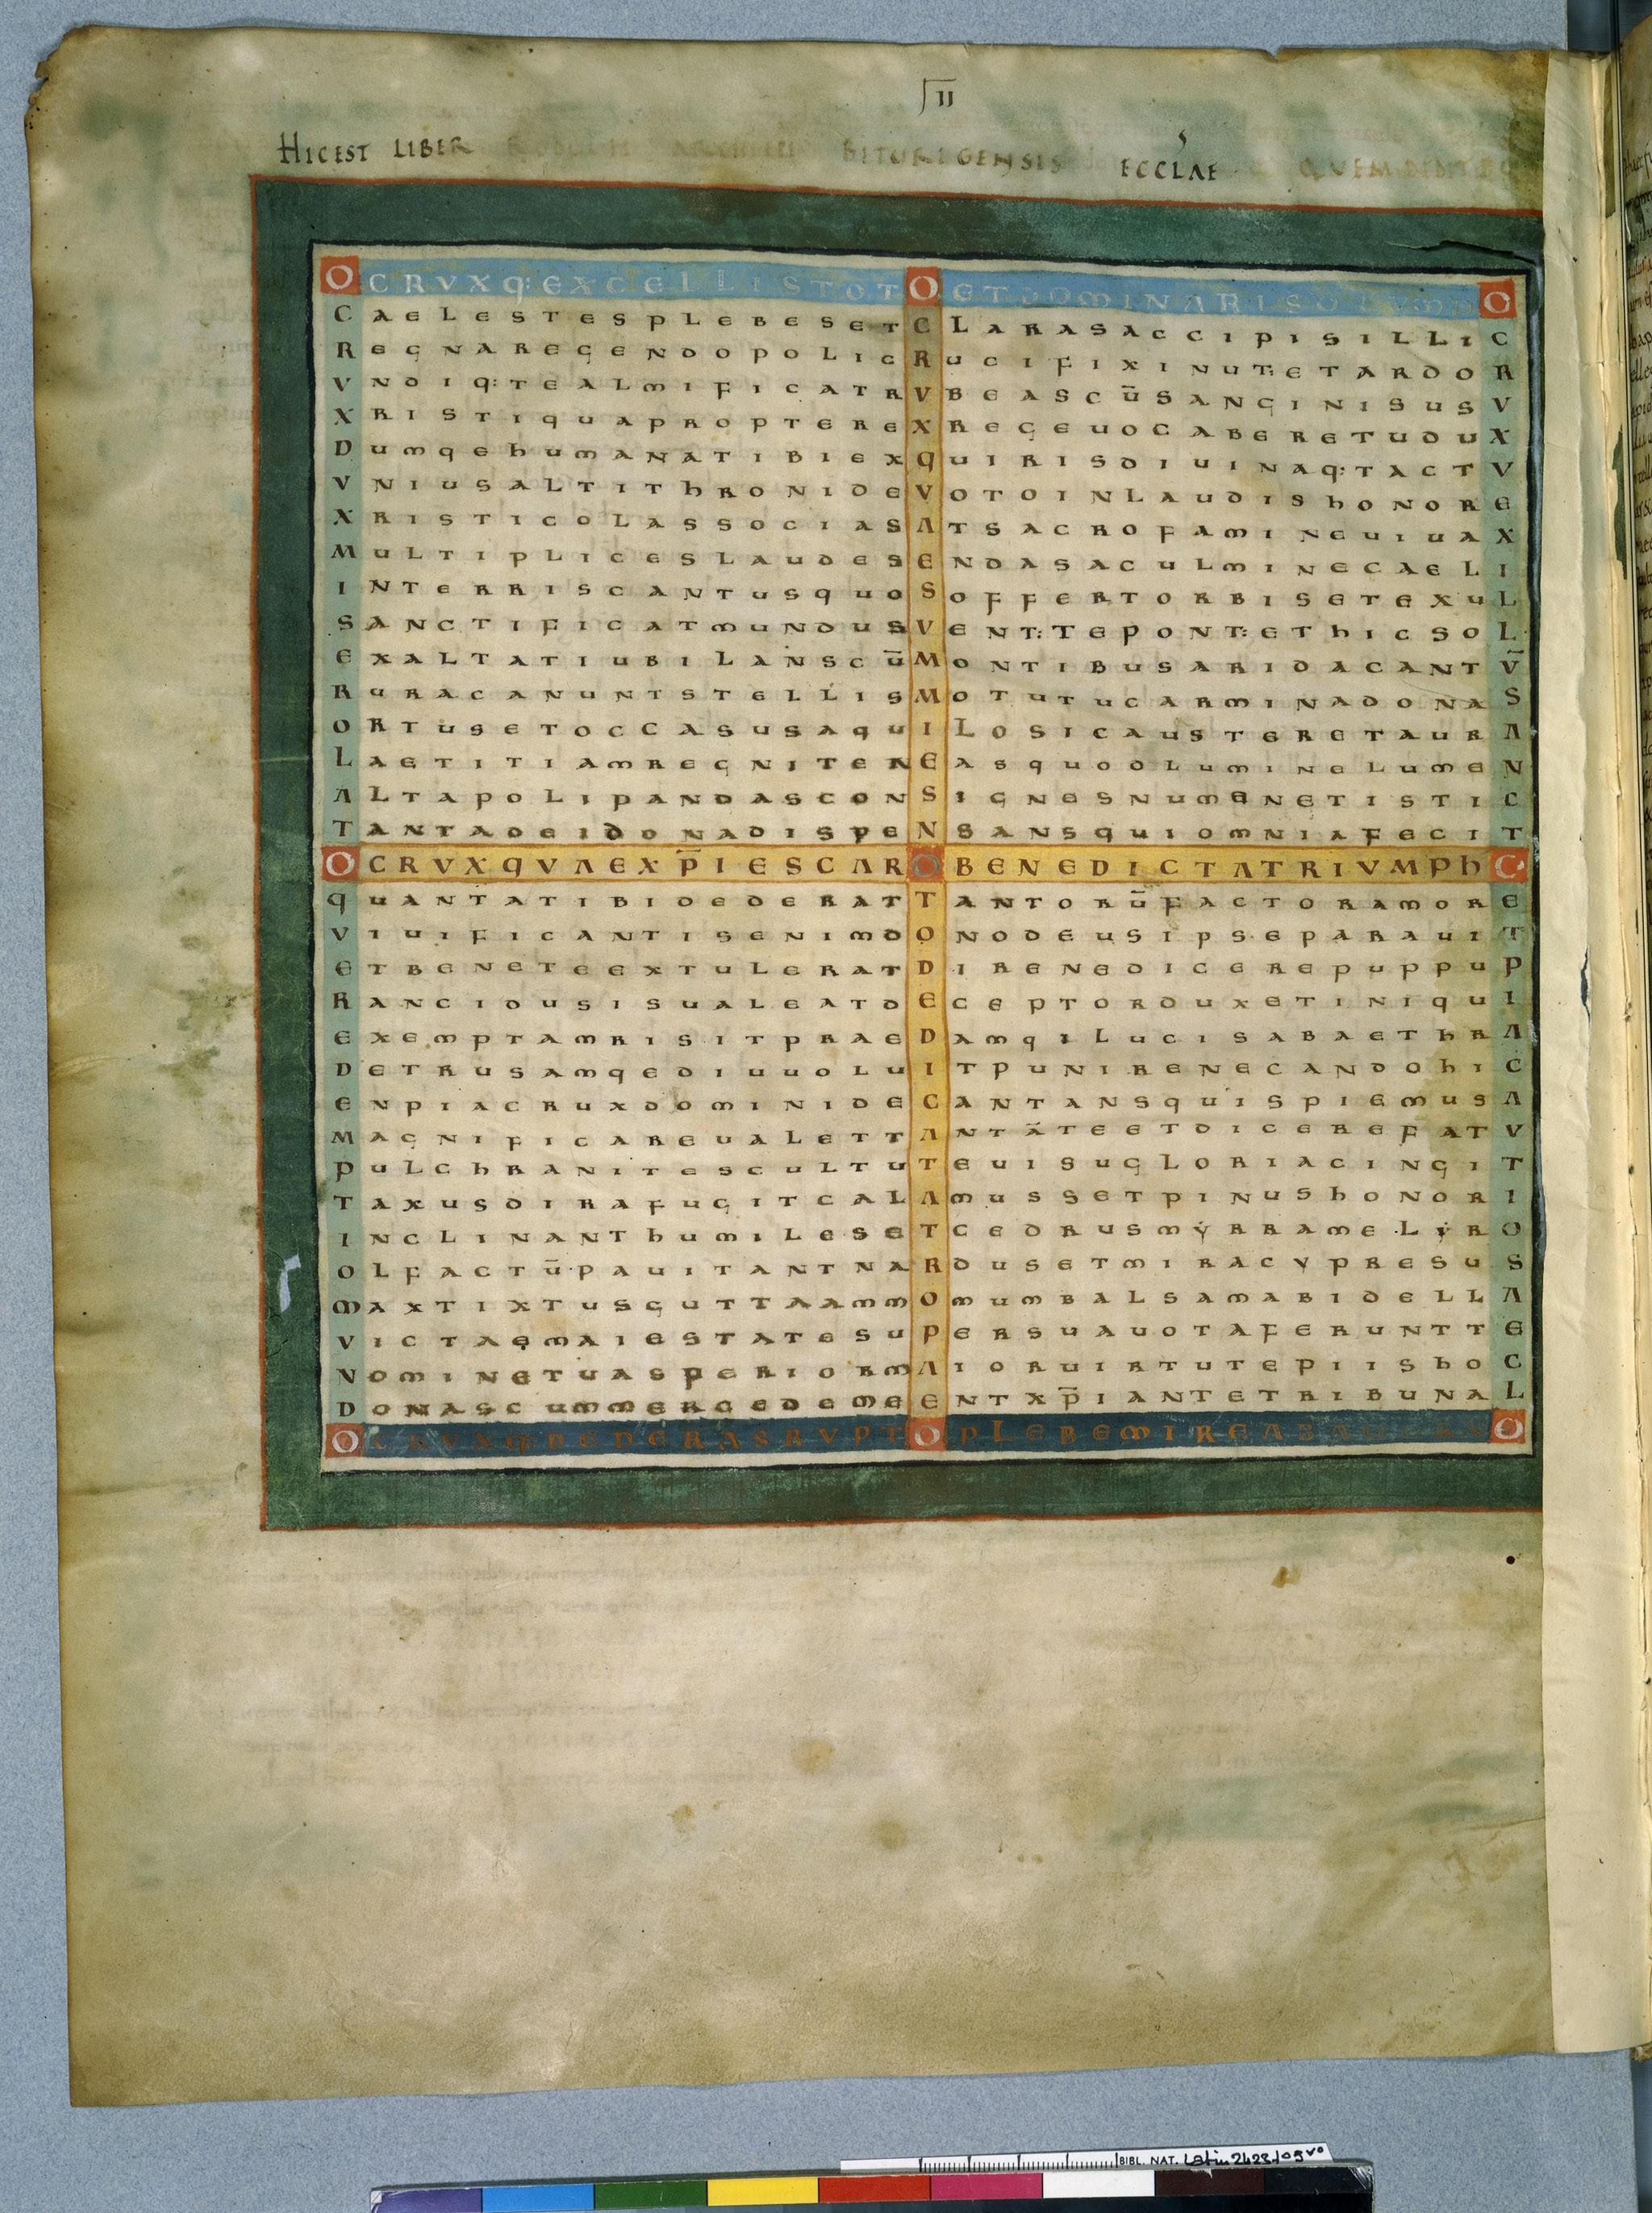 II
HIC EST LIBER BITURIGENSIS ECCLAE QUEM DEDIT
OCRVXQ:EXCELLISTOTOETDOMINARISOLYMPO
CAELESTESPLEBESETCLARASACCIPISILLIC
REGNAREGENDOPOLICRUCIFIXINUT:ETARDOR
VNDIQ:TEALMIFICATRVBEASCŪSANGINISUSV
XRISTIQUAPROPTEREXREGEUOCABERETUDUX
DUMQEHUMANATIBIEXQUIRISDIUINAQ:TACTV
VNIUSALTITHRONIDEVOTOINLAUDISHONORE
XRISTICOLASSOCIASATSACROFAMINEUIUAX
MULTIPLICESLAUDESENDASACULMINECAELI
INTERRISCANTUSQUOSOFFERTORBISETEXUL
SANCTIFICATMUNDUSVENT:TEPONT:ETHICSOL
EXALTATIUBILANSCŪMONTIBUSARIDACANTV̄
RURACANUNTSTELLISMOTUTUCARMINADONAS
ORTUSETOCCASUSAQUILOSICAUSTERETAURA
LAETITIAMREGNITENEASQUODLUMINELUMEN
ALTAPOLIPANDASCONSIGNESNUMENETISTIC
TANTADEIDONADISPENSANSQUIOMNIAFECIT
OCRVXQVAEXP̄IESCAROBENEDICTATRIVMPHC
QUANTATIBIDEDERATTANTORŪFACTORAMORE
VIUIFICANTISENIMDONODEUSIPSEPARAUIT
ETBENETEEXTULERATDIBENEDICEREPUPPUP
RANCIDUSISUALEATDECEPTORDUXETINIQUI
EXEMPTAMRISITPRAEDAMQILUCISABAETHRA
DETRUSAMQEDIUUOLUITPUNIRENECANDOHIC
ENPIACRUXDOMINIDECANTANSQUISPIEMUSA
MAGNIFICAREUALETTANTĀTEETDICEREFATV
PULCHRANITESCULTUTEUISUGLORIACINGIT
TAXUSDIRAFUGITCALAMUSSETPINUSHONORI
INCLINANTHUMILESETCEDRUSMYRRAMELYRO
OLFACTŪPAUITANTNARDUSETMIRACYPRESUS
MAXTIXTUSGUTTAAMMOMUMBALSAMABIDELLA
VICTAEMAIESTATESUPERSUAUOTAFERUNTTE
NOMINETUASPERIORMAIORUIRTUTEPIISHOC
DONASCUMMERGEDEMEENTXP̄IANTETRIBUNAL
OCRVXQ:DEDERASRVPTOPLEBEMIREABAVERNO
BIBL. NAT. Latin 2423, 05 vo